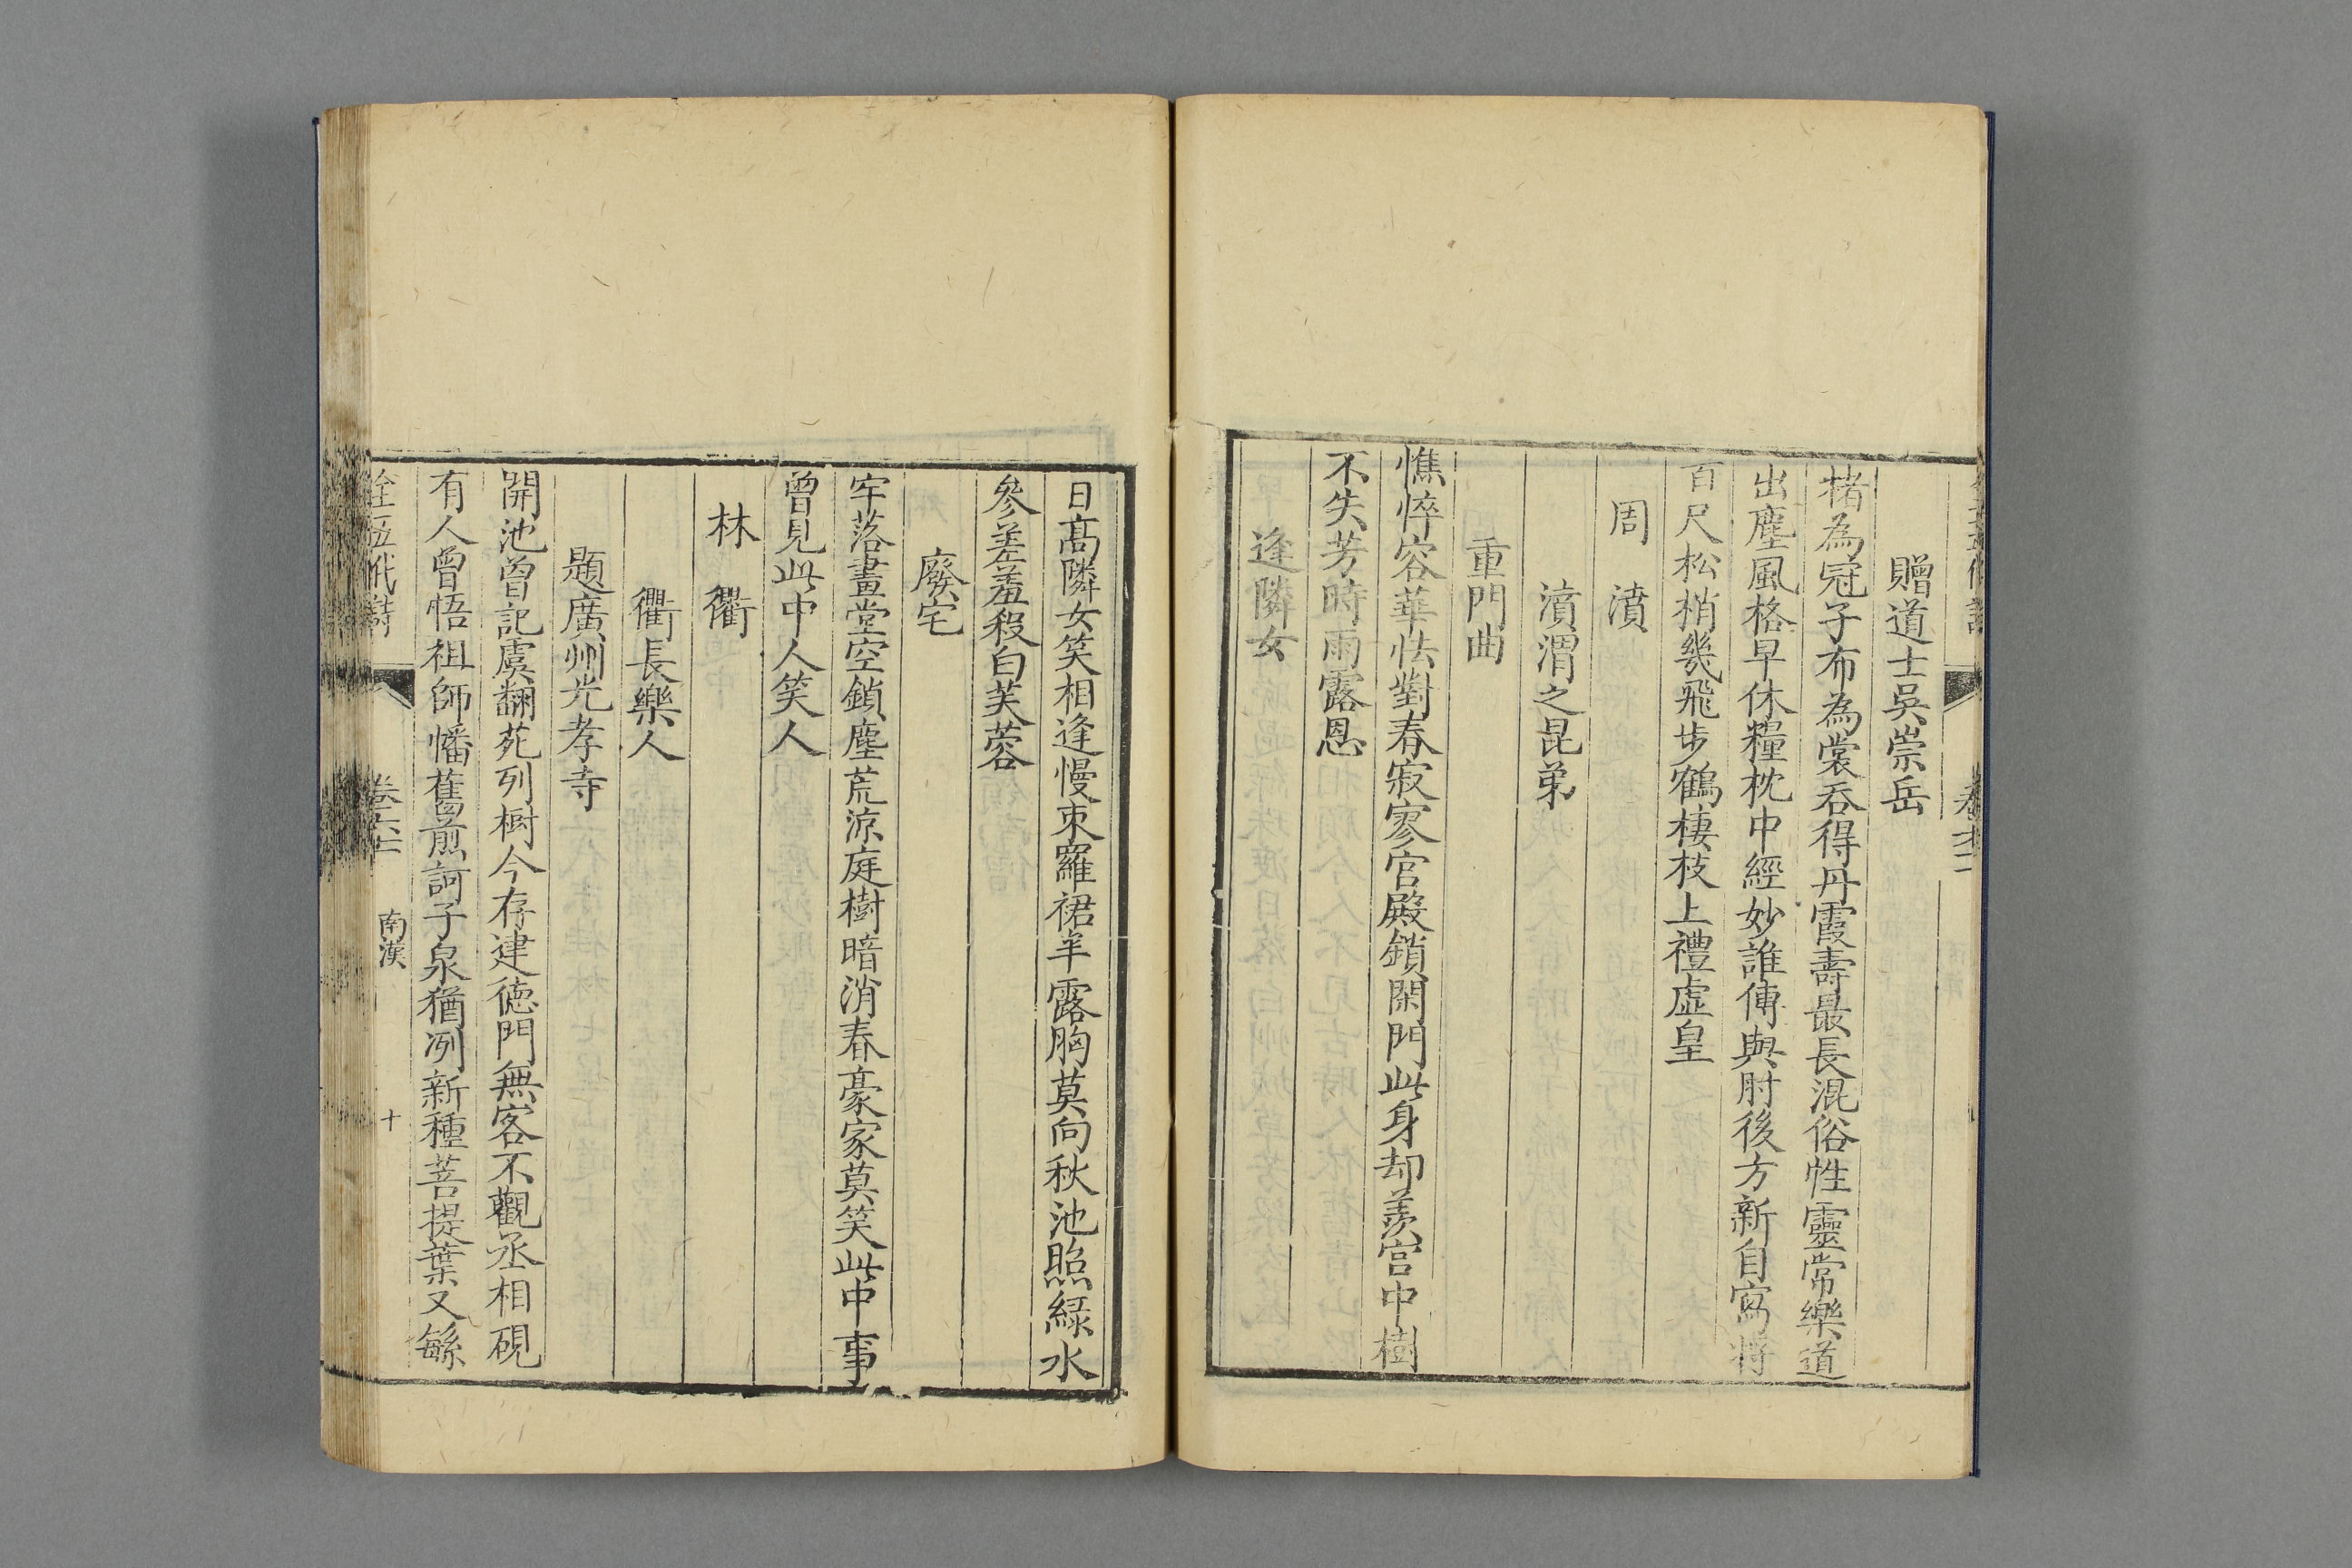 贈道士吳崇岳
楮為冠子布為裳吞得丹霞壽最長混俗性靈常樂道
出塵風格早休糧枕中經妙誰傳與肘後方新自寫將
百尺松梢幾飛步鶴棲枝上禮虛皇
周濆
濆渭之昆弟
重門曲
憔悴容華怯對春寂寥官殿鎖閑門此身却羨宮中樹
不失芳時雨露恩
逢隣女
日髙隣女笑相逢慢束羅裙半露胸莫向秋池照緑水
參差羞殺白芙蓉
廢宅
牢落畫堂空鎖塵荒涼庭樹暗消春豪家莫笑此中事
曾見此中人笑人
林衢
衢長樂人
題廣州光孝寺
開池曾記虞翻苑列樹今存建德門無客不觀丞相硯
有人曾悟祖師幡舊煎訶子泉猶冽新種菩提葉又繁
全五代詩
南漢
十